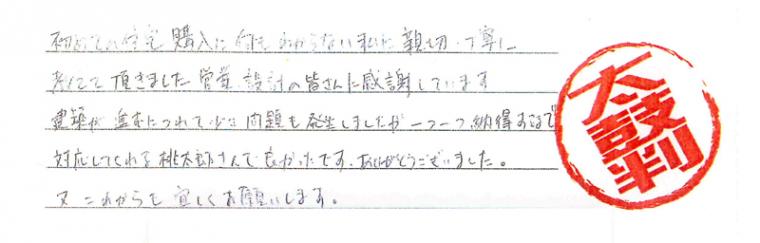 初めての住宅購入に何もわからない私に親切、丁寧に
教えて頂きました営業、設計の皆さんに感謝しています
建築が進むにつれて少々問題も発生しましたが一つ一つ納得するまで
対応してくれる桃太郎さんで良かったです。ありがとうございました。
又これからも宜しくお願いします。
太鼓判